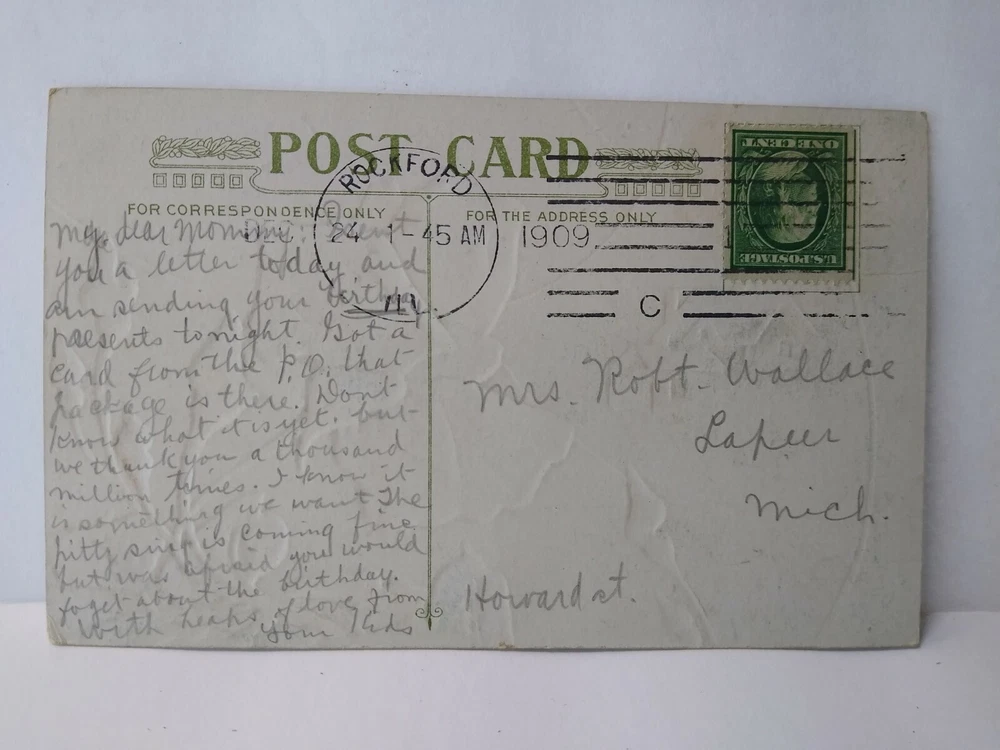 POST CARD
ROCKFORD
DEC 24 1-45 AM 1909
ILL.
C
ONE CENT
U.S. POSTAGE
FOR CORRESPONDENCE ONLY
FOR THE ADDRESS ONLY
My dear Momma: Sent
you a letter today and
am sending your birthday
presents tonight. Got a
card from the P.O. that
package is there. Dont
know what it is yet. but
we thank you a thousand
million times. I know it
is something we want The
pitty sing is coming fine
but was afraid you would
foget about the birthday.
With heaps of love from
your Kids
Mrs. Robt. Wallace
Lapeer
Mich.
Howard st.